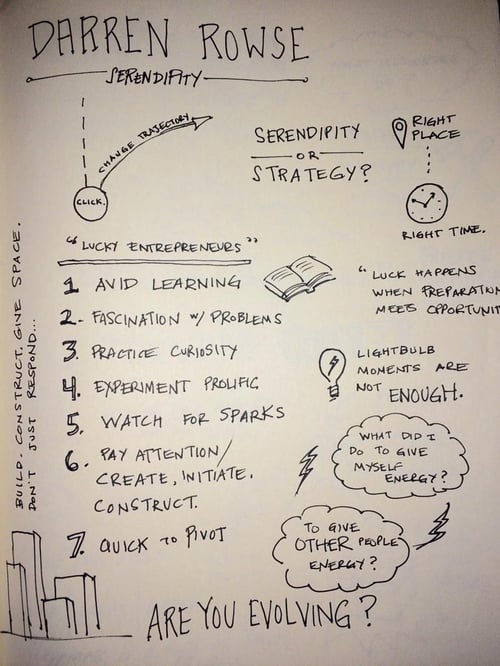 DARREN ROWSE
SERENDIPITY
CHANGE TRAJECTORY
CLICK.
SERENDIPITY
OR
STRATEGY?
RIGHT
PLACE
RIGHT TIME.
"LUCKY ENTREPRENEURS"
1 AVID LEARNING
2. FASCINATION W/ PROBLEMS
3. PRACTICE CURIOSITY
4. EXPERIMENT PROLIFIC
5. WATCH FOR SPARKS
6. PAY ATTENTION/
CREATE, INITIATE.
CONSTRUCT.
7. QUICK TO PIVOT
"LUCK HAPPENS
WHEN PREPARATION
MEETS OPPORTUNIT
LIGHTBULB
MOMENTS ARE
NOT ENOUGH.
WHAT DID I
DO TO GIVE
MYSELF
ENERGY?
TO GIVE
OTHER PEOPLE
ENERGY?
BUILD. CONSTRUCT. GIVE SPACE.
DON'T JUST RESPOND...
ARE YOU EVOLVING?